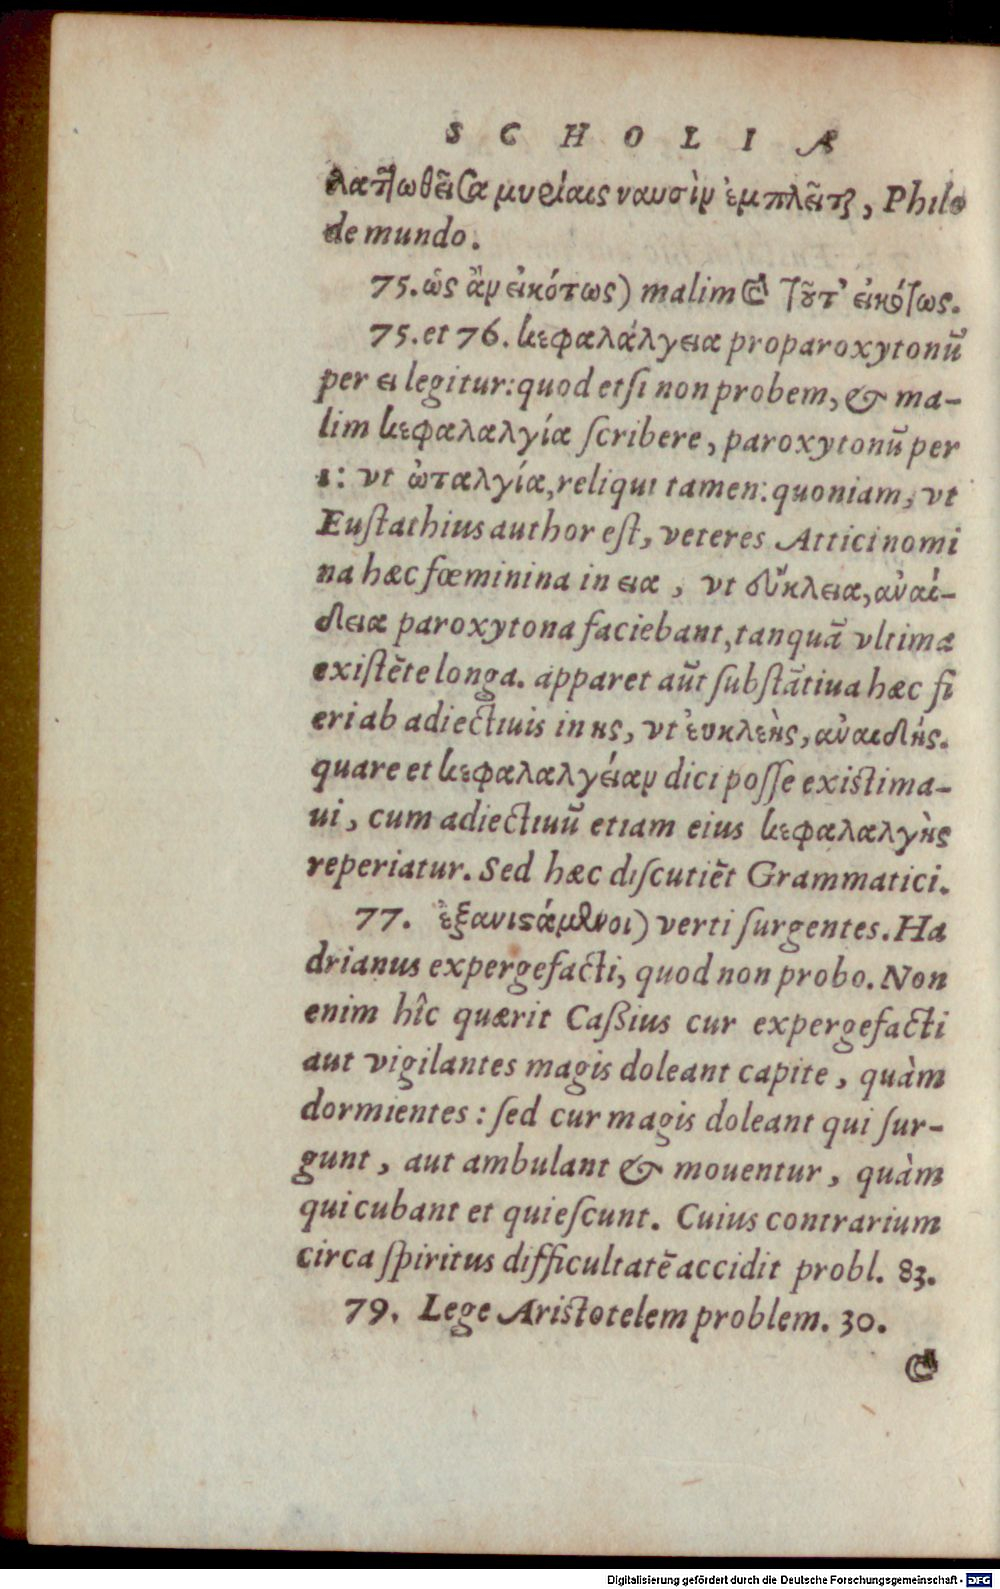 SCHOLIA
λατ]ωθεῖσα μυρίαις ναυσὶν ἐμπλεῖται, Philo
de mundo.
75. ὡς ἂν εἰκότως) malim ϗ τοῦτ' εἰκότως.
75. et 76. κεφαλάλγεια proparoxytonū
per ει legitur: quod etſi non probem, & ma-
lim κεφαλαλγία ſcribere, paroxytonū per
ι: vt ὠταλγία, reliqui tamen: quoniam, vt
Euſtathius author eſt, veteres Attici nomi
na hæc fœminina in εια, vt εὔκλεια, αναί-
δεια paroxytona faciebant, tanquā vltima
exiſtēte longa. apparet aūt ſubſtātiua hæc fi
eri ab adiectiuis in ης, vt ἐυκλεὴς, ἀναιδής.
quare et κεφαλαλγείαν dici poſſe existima-
ui, cum adiectiuū etiam eius κεφαλαλγὴς
reperiatur. Sed hæc diſcutiēt Grammatici.
77. ἐξανιϛάμενοι) verti ſurgentes. Ha
drianus expergefacti, quod non probo. Non
enim hîc quærit Caßius cur expergefacti
aut vigilantes magis doleant capite, quàm
dormientes: ſed cur magis doleant qui ſur-
gunt, aut ambulant & mouentur, quàm
qui cubant et quieſcunt. Cuius contrarium
circa ſpiritus difficultatē accidit probl. 83.
79. Lege Aristotelem problem. 30.
ϗ
Digitalisierung gefördert durch die Deutsche Forschungsgemeinschaft - DFG